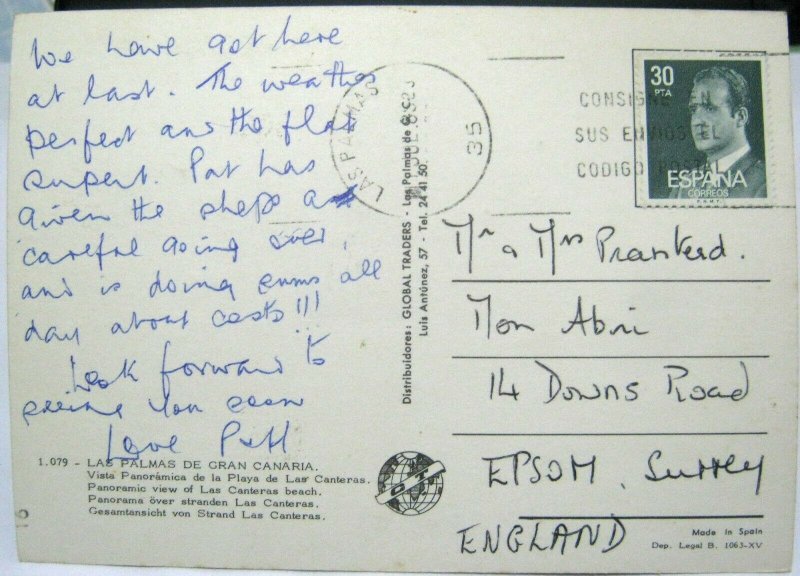 We have got here
at last. The weather
perfect and the flat
superb. Pat has
given the shops a
careful going over,
and is doing sums all
day about costs!!!
Look forward to
seeing you soon
Love
1.079 - LAS PALMAS DE GRAN CANARIA.
Vista Panorámica de la Playa de Las Canteras.
Panoramic view of Las Canteras beach.
Panorama över stranden Las Canteras.
Gesamtansicht von Strand Las Canteras.
LAS PALMAS
35
Distribuidores: GLOBAL TRADERS - Las Palmas de G. C.
Luis Antúnez, 57 - Tel. 24 41 50
30
PTA
ESPAÑA
CORREOS
F.N.M.T.
CONSIGNE EN
SUS ENVIOS EL
CODIGO POSTAL
Mr & Mrs
Mon Abri
14 Downs Road
EPSOM, Surrey
ENGLAND
Made in Spain
Dep. Legal B. 1063-XV